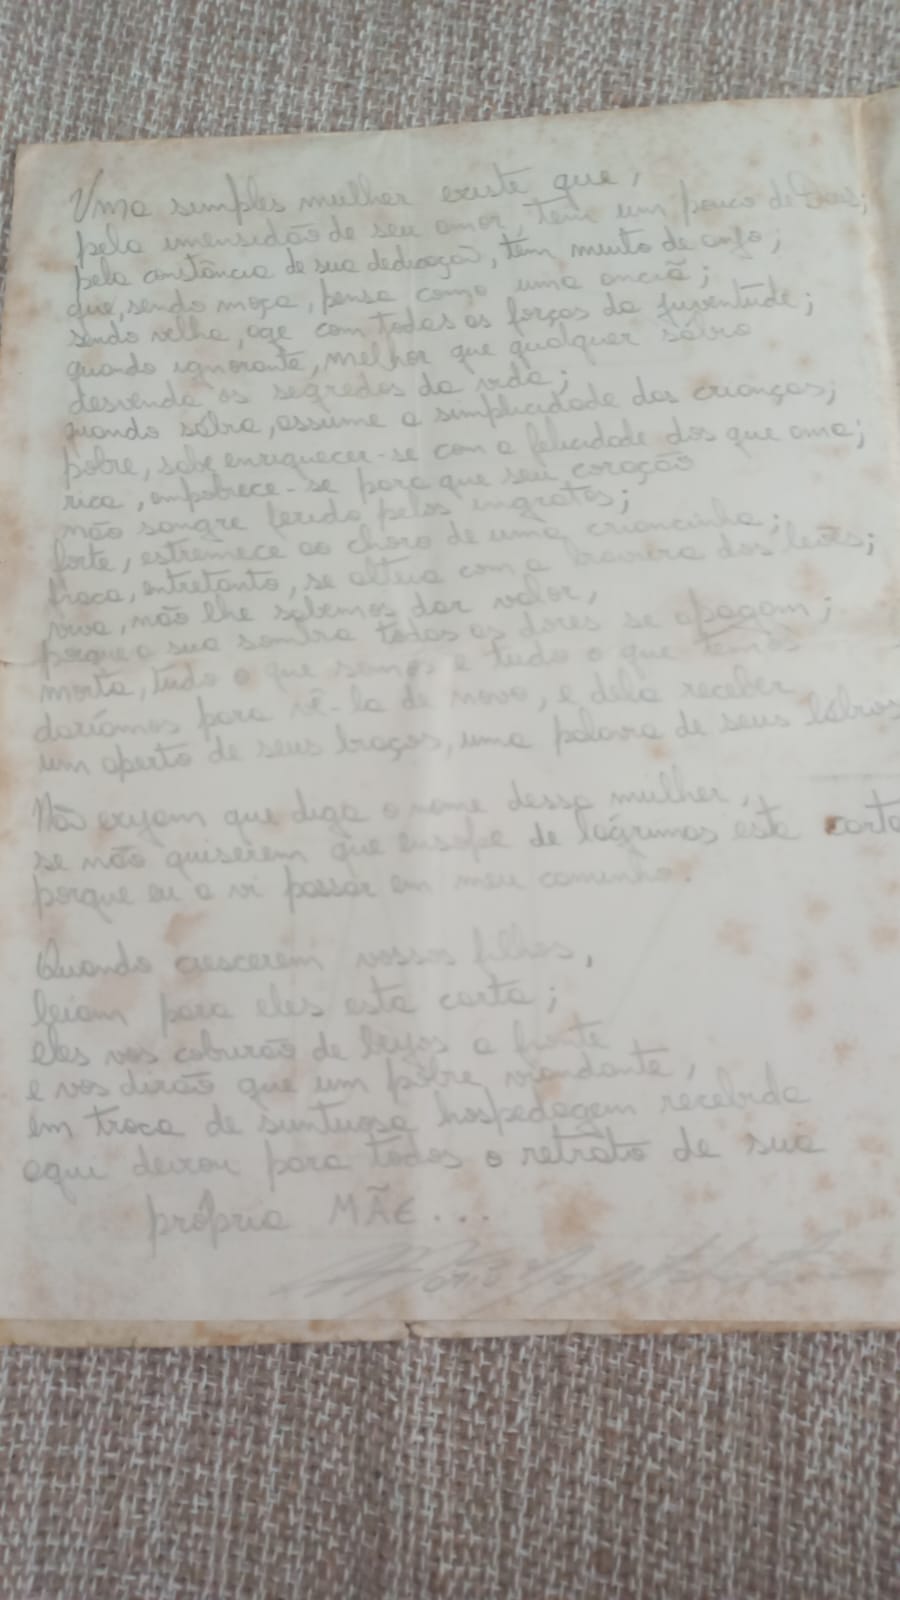 Uma simples mulher existe que,
pela imensidão de seu amor, tem um pouco de Deus;
pela constância de sua dedicação, tem muito de anjo;
que, sendo moça, pensa como uma anciã;
sendo velha, age com todas as forças da juventude;
quando ignorante, melhor que qualquer sábio
desvenda os segredos da vida;
quando sábia, assume a simplicidade das crianças;
pobre, sabe enriquecer-se com a felicidade dos que ama;
rica, empobrece-se para que seu coração
não sangre ferido pelos ingratos;
forte, estremece ao choro de uma criancinha;
fraca, entretanto, se alteia com a bravura dos leões;
viva, não lhe sabemos dar valor,
porque a sua sombra todas as dores se apagam;
morta, tudo o que somos e tudo o que temos
daríamos para vê-la de novo, e dela receber
um aperto de seus braços, uma palavra de seus lábios
Não exijam que diga o nome dessa mulher,
se não quiserem que ensope de lágrimas esta carta
porque eu a vi passar em meu caminho.
Quando crescerem vossos filhos,
leiam para eles esta carta;
eles vos cobrirão de beijos a fronte
e vos dirão que um pobre viandante,
em troca de suntuosa hospedagem recebida
aqui deixou para todos o retrato de sua
própria MÃE...